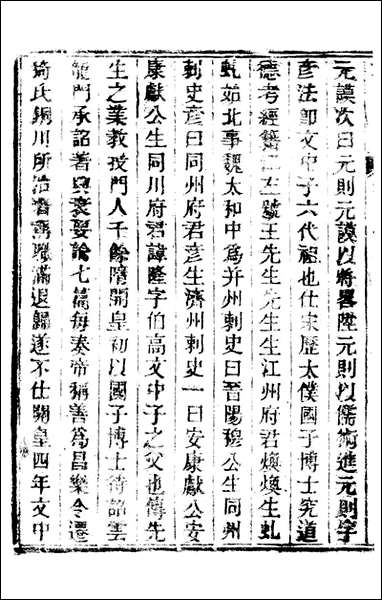 元謨次曰元則元謨以將畧陞元則以儒術進元則字
彥法即文中子六代祖也仕宋歷太僕國子博士究道
德考經籍江左號王先生先生生江州府君煥煥生虬
虬始北事魏太和中爲并州刺史曰晉陽穆公生同州
刺史彥曰同州府君彥生濟州刺史一曰安康獻公安
康獻公生同川府君諱隆字伯高文中子之父也傳先
生之業教授門人千餘隋開皇初以國子博士待詔雲
龍門承詔著興衰要論七篇每奏帝稱善爲昌樂令遷
猗氏銅川所治著稱秩滿退歸遂不仕開皇四年文中